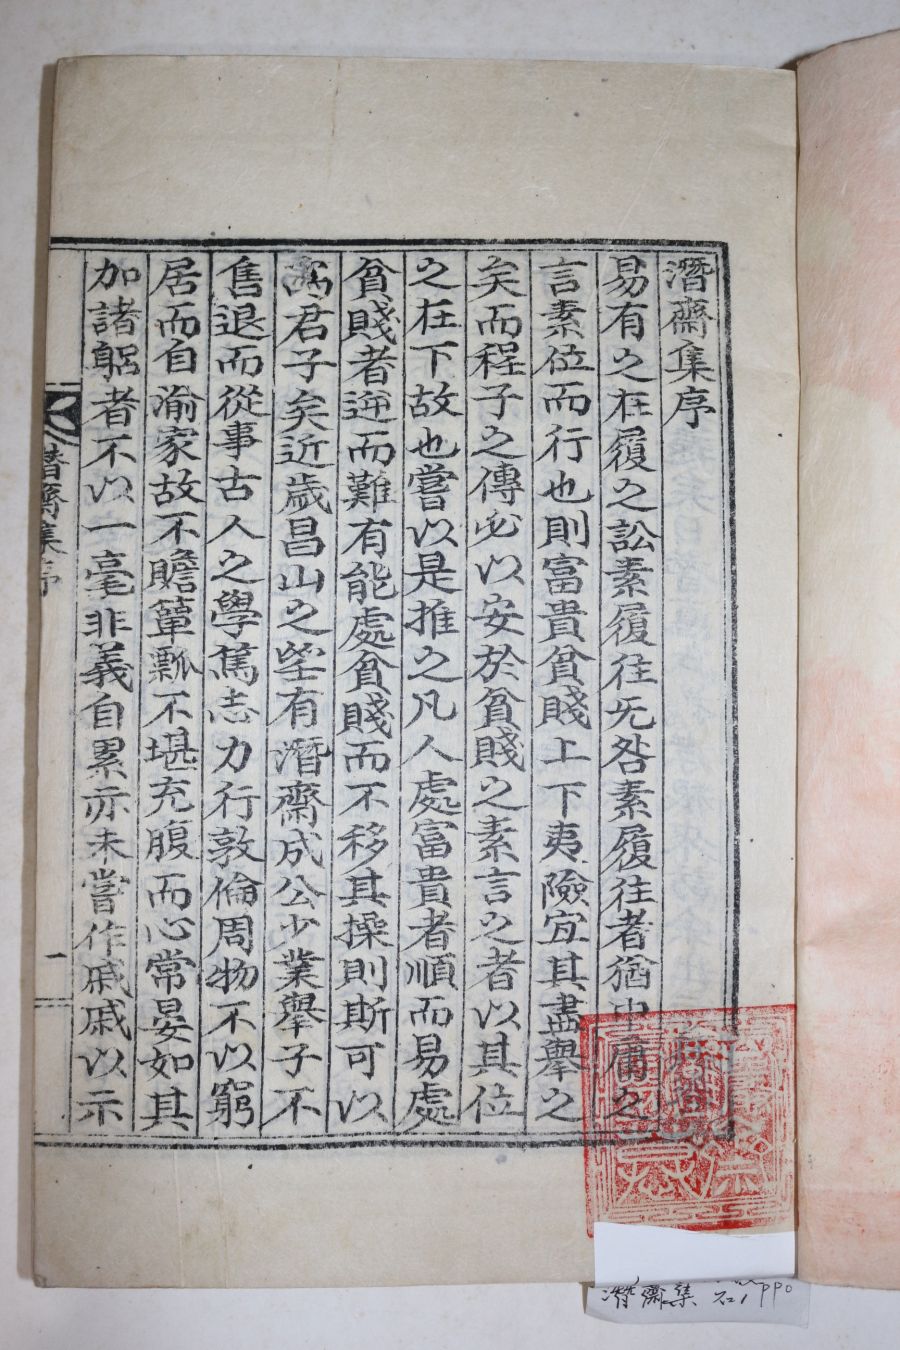 潛齋集序
易有之在履之訟素履往无咎素履往者猶中庸之
言素位而行也則富貴貧賤上下夷險宜其盡舉之
矣而程子之傳必以安於貧賤之素言之者以其位
之在下故也嘗以是推之凡人處富貴者順而易處
貧賤者逆而難有能處貧賤而不移其操則斯可以
爲君子矣近歲昌山之㘴有潛齋成公少業擧子不
售退而從事古人之學篤志力行敦倫周物不以窮
居而自渝家故不贍簞瓢不堪充腹而心常晏如其
加諸躬者不以一毫非義自累亦未嘗作戚戚以示
潛齋集序
一
潛齋集